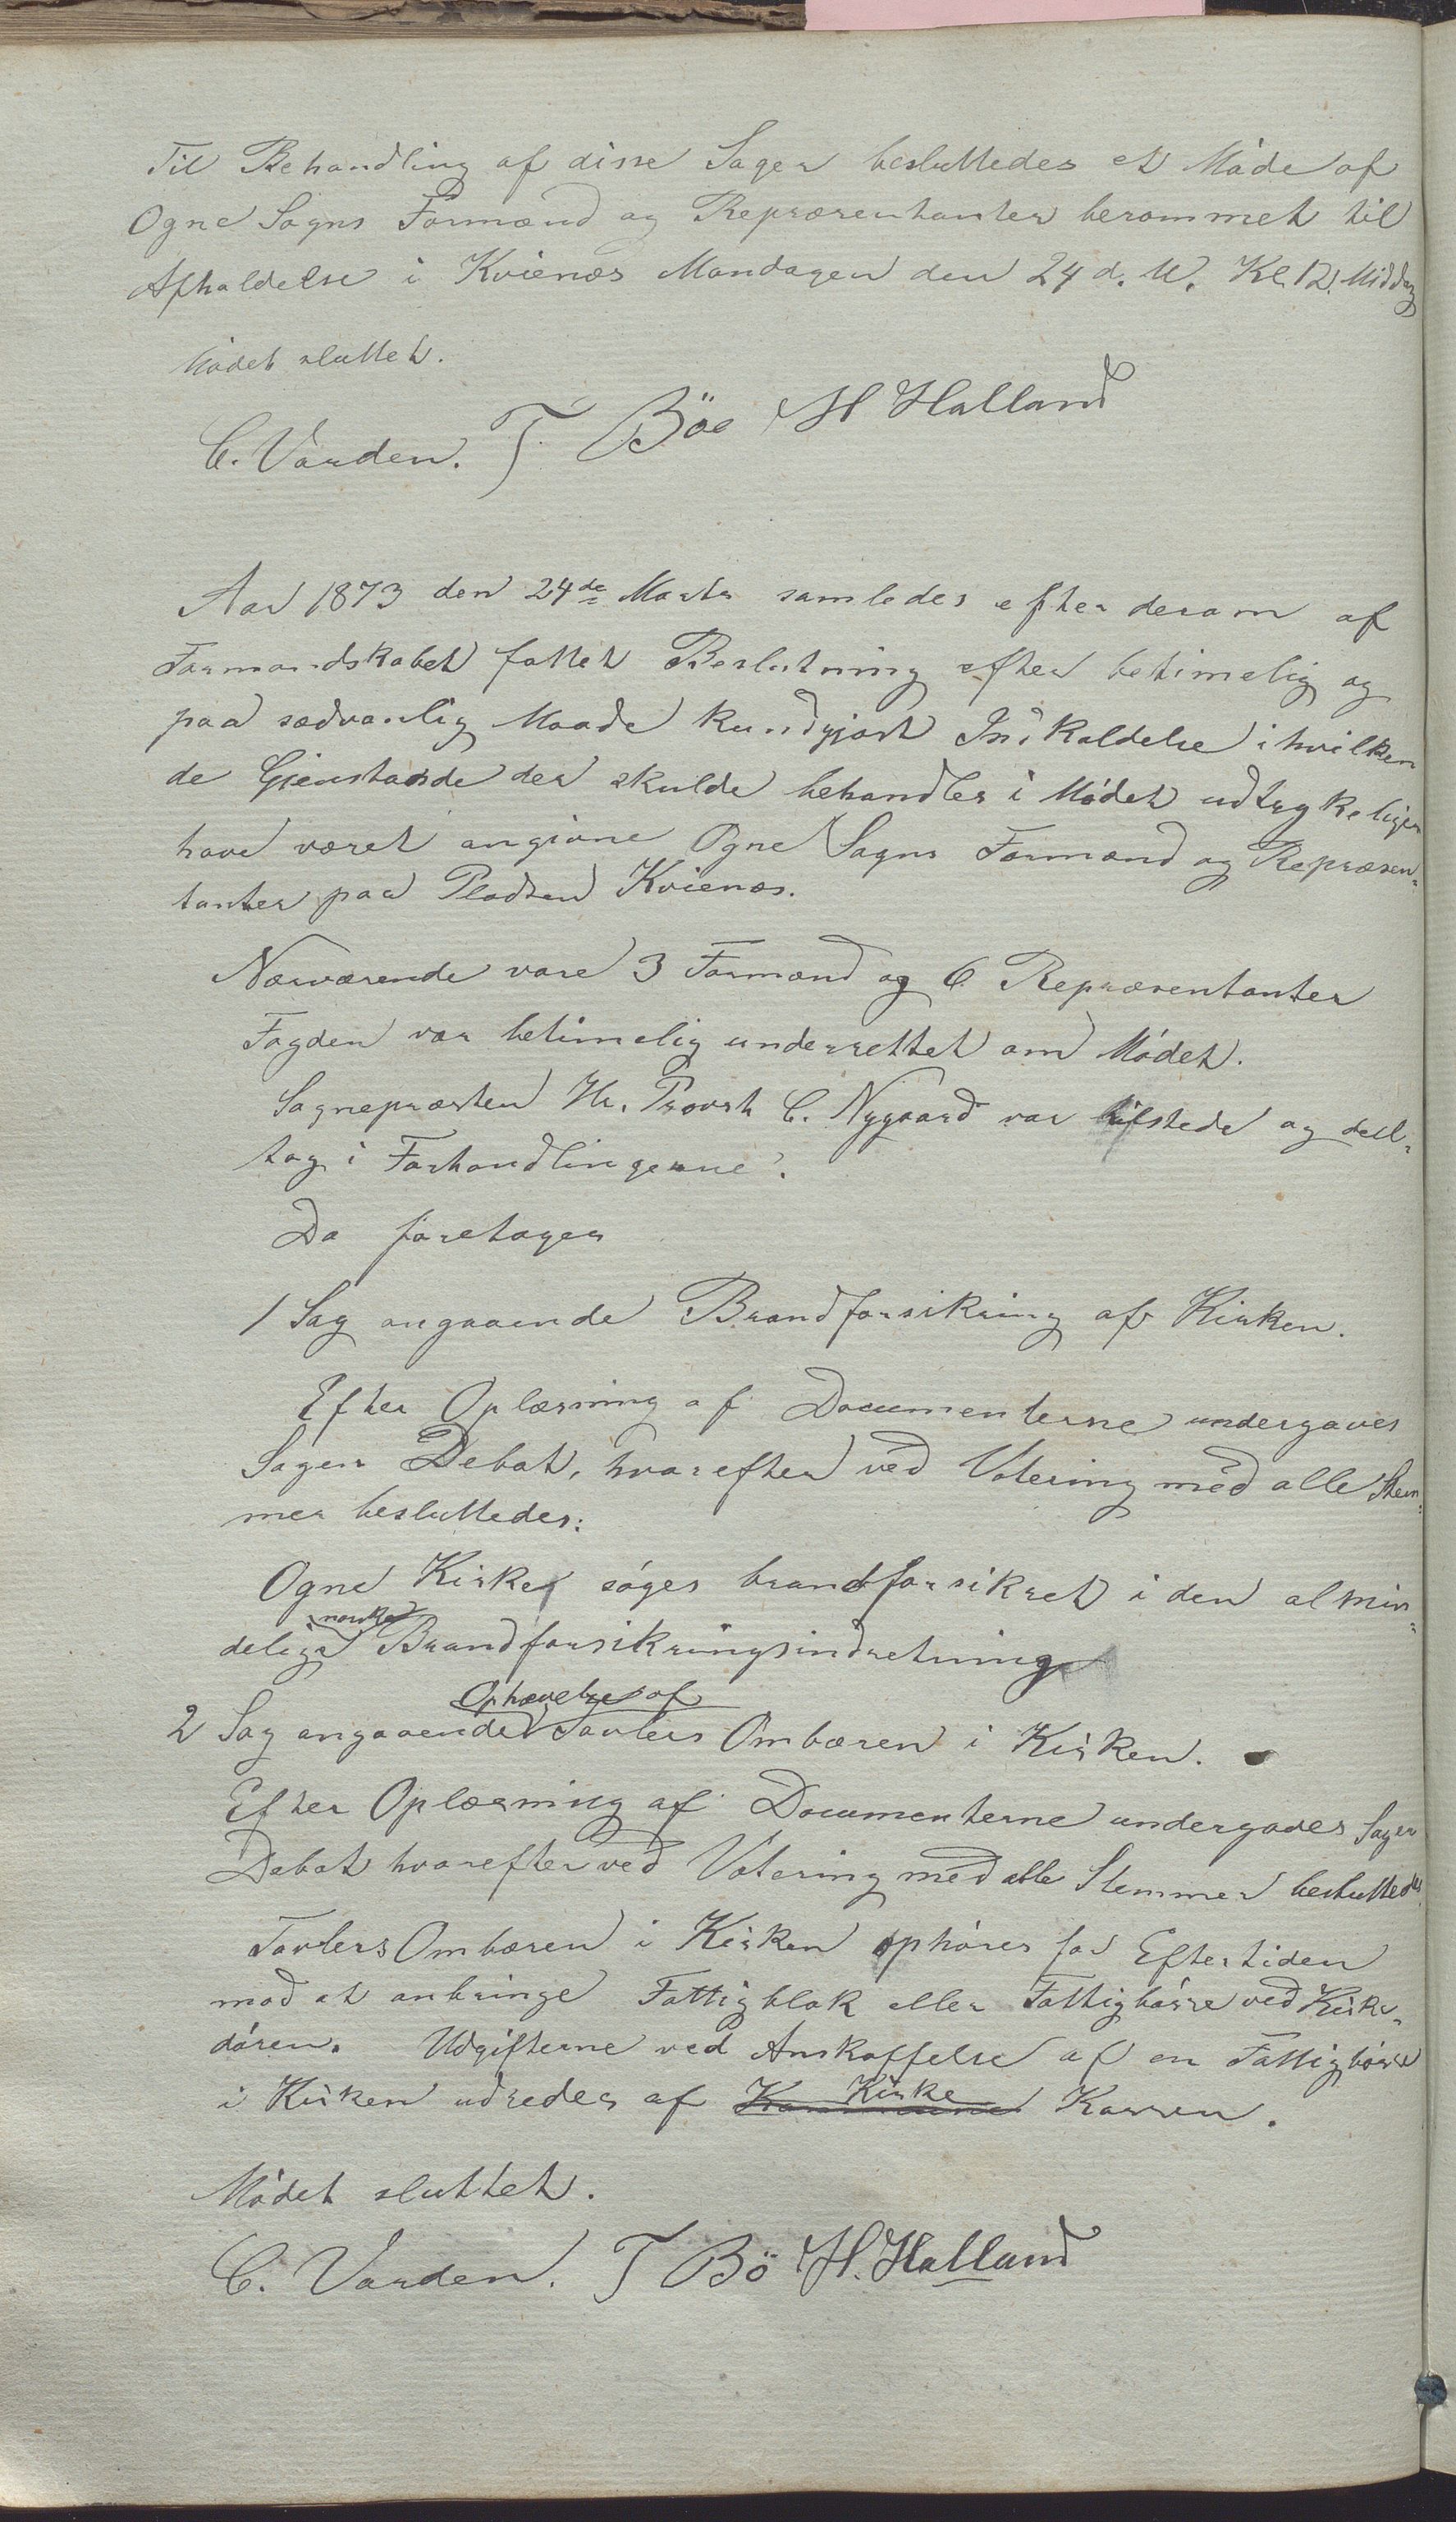 Til Behandling af disse Sager besluttedes et Møde af
Ogne Sogns Formænd og Repræsentanter berammet til
Afholdelse i Kvienæs Mandagen den 24 d. M. Kl. 12 Middag
Mødet sluttet.
C. Varden. T Böe H Halland
Aar 1873 den 24de Marts samledes efter derom af
Formandskabet fattet Beslutning efter betimelig og
paa sædvanlig Maade kundgjort Indkaldelse i hvilken
de Gjenstande der skulde behandles i Mødet udtrykkeligen
have været angivne Ogne Sogns Formænd og Repræsen-
tanter paa Pladsen Kvienæs.
Nærværende vare 3 Formænd og 6 Repræsentanter
Fogden var betimelig underrettet om Mødet.
Sognepræsten Hr. Provst C. Nygaard var tilstede og deel-
tog i Forhandlingerne.
Da foretoges
1 Sag angaaende Brandforsikring af Kirken.
Efter Oplæsning af Documenterne undergaves
Sagen Debat, hvorefter ved Votering med alle Stem-
mer besluttedes:
Ogne Kirke søges brandforsikret i den almin-
norske
delige Brandforsikringsindretning
Ophævelse af
2 Sag angaaende Tavlers Ombæren i Kirken.
Efter Oplæsning af Documenterne undergaves Sagen
Debat hvorefter ved Votering med alle Stemmer besluttedes
Tavlers Ombæren i Kirken ophører for Eftertiden
mod at anbringe Fattigblok eller Fattigbøsse ved Kirke-
døren. Udgifterne ved Anskaffelse af en Fattigbøsse
i Kirken udredes af Kirke Kassen.
Mødet sluttet.
C. Varden. T Bö H. Halland